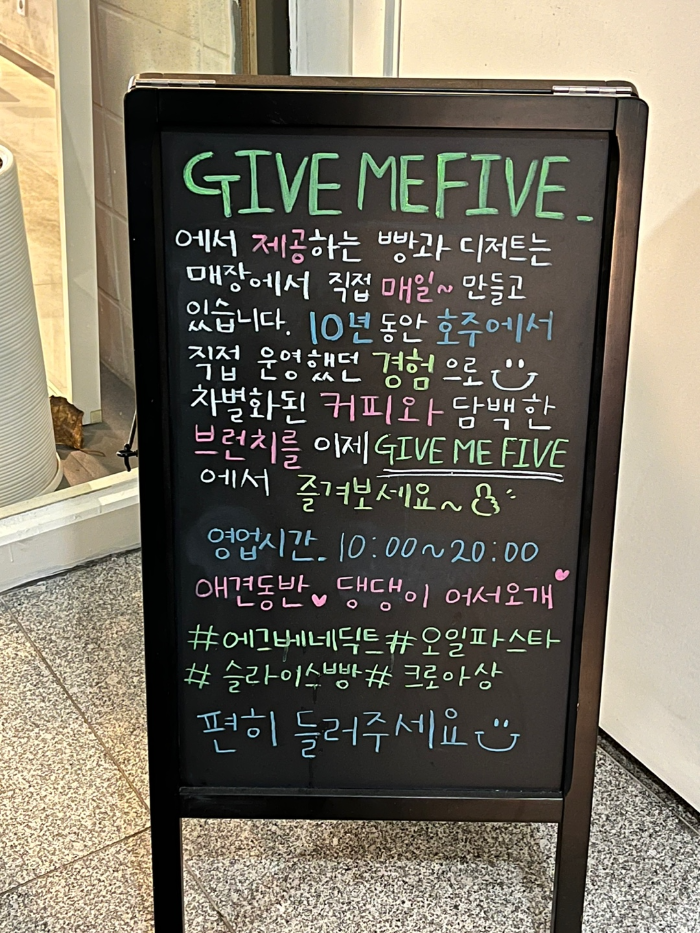 GIVE ME FIVE_
에서 제공하는 빵과 디저트는
매장에서 직접 매일~ 만들고
있습니다. 10년동안 호주에서
직접 운영했던 경험으로
차별화된 커피와 담백한
브런치를 이제 GIVE ME FIVE
에서 즐겨보세요~
영업시간. 10:00~20:00
애견동반♥ 댕댕이 어서오개♥
#에그베네딕트#오일파스타
# 슬라이스빵# 크로아상
편히 들러주세요